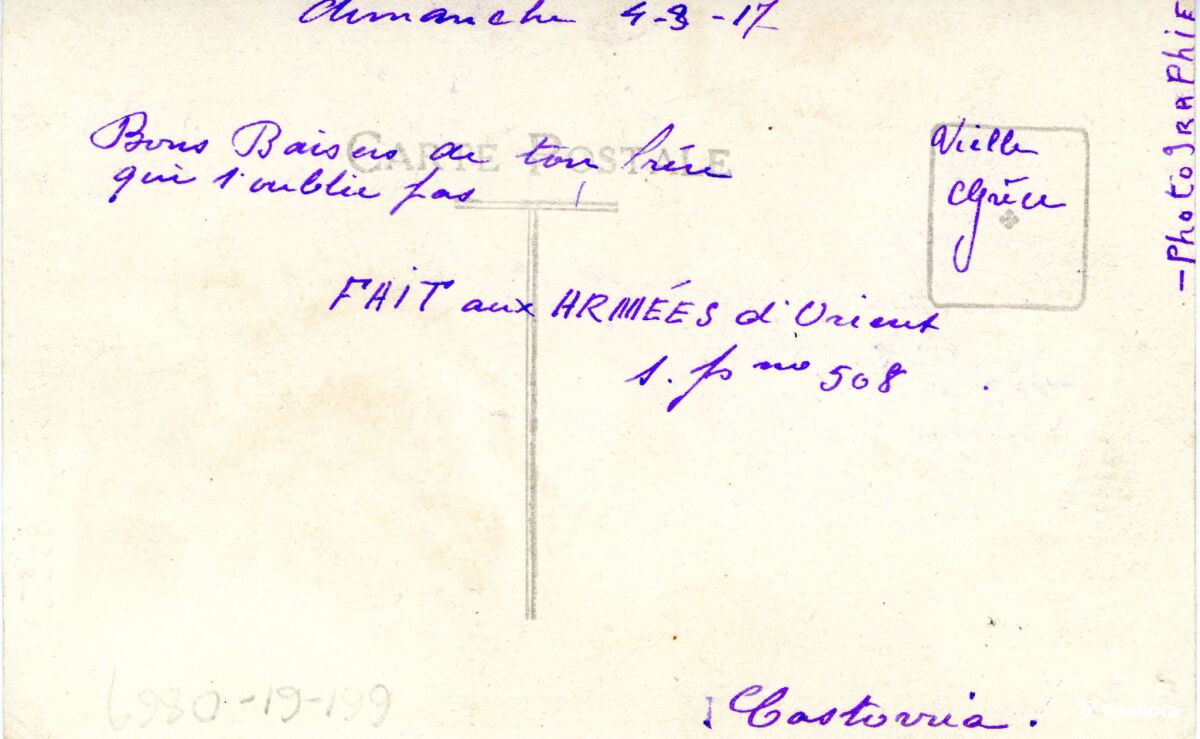 dimanche 4-3-17
Bons Baisers de ton frère
qui t'oublie pas
CARTE POSTALE
Vielle
Grèce
-PhotoGRAPHiE
FAiT aux ARMÉES d'Orient
s. p no 508
Castorria.
Vendora